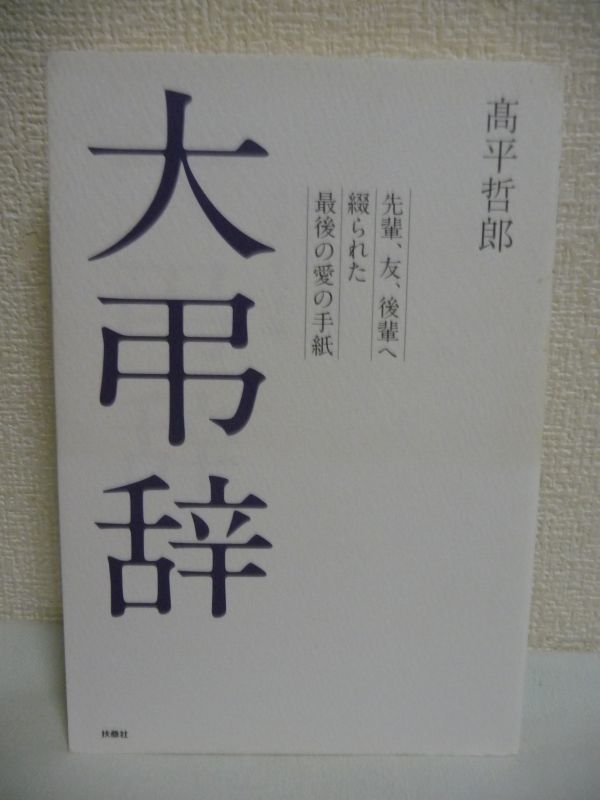 髙平哲郎
先輩、友、後輩へ
綴られた
最後の愛の手紙
大弔辞
扶桑社